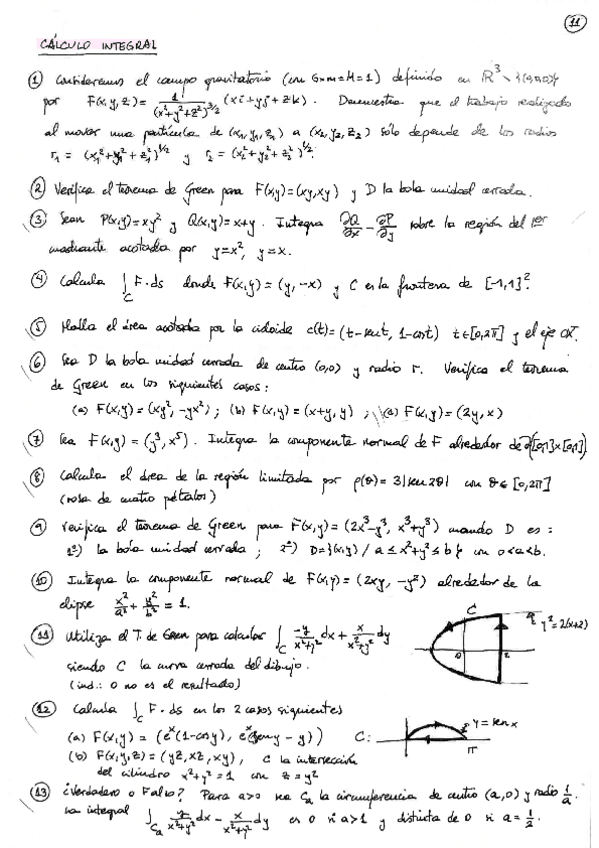 11
CÁLCULO INTEGRAL
① Consideremos el campo gravitatorio (con G=m=M=1) definido en ℝ³ \ {(0,0,0)}
por F(x,y,z) = 1/(x²+y²+z²)^{3/2} (xi+yj+zk). Demuestra que el trabajo realizado
al mover una partícula de (x₁,y₁,z₁) a (x₂,y₂,z₂) sólo depende de los radios
r₁ = (x₁²+y₁²+z₁²)^{1/2} y r₂ = (x₂²+y₂²+z₂²)^{1/2}.
② Verifica el teorema de Green para F(x,y)=(xy,xy) y D la bola unidad cerrada.
③ Sean P(x,y)=xy² y Q(x,y)=x+y. Integra ∂Q/∂x - ∂P/∂y sobre la región del 1er
cuadrante acotada por y=x², y=x.
④ Calcula ∫_C F·ds donde F(x,y)=(y,-x) y C es la frontera de [-1,1]².
⑤ Halla el área acotada por la cicloide c(t)=(t-sent, 1-cost) t∈[0,2π] y el eje OX.
⑥ Sea D la bola unidad cerrada de centro (0,0) y radio r. Verifica el teorema
de Green en los siguientes casos:
(a) F(x,y)=(xy²,-yx²) ; (b) F(x,y)=(x+y,y) ; (c) F(x,y)=(2y,x)
⑦ Sea F(x,y)=(y³,x⁵). Integra la componente normal de F alrededor de ∂([0,1]×[0,1]).
⑧ Calcula el área de la región limitada por ρ(θ)=3|sen2θ| con θ∈[0,2π]
(rosa de cuatro pétalos)
⑨ Verifica el teorema de Green para F(x,y)=(2x³-y³, x³+y³) cuando D es:
1º) la bola unidad cerrada ; 2º) D={(x,y) / a≤x²+y²≤b} con 0<a<b.
⑩ Integra la componente normal de F(x,y)=(2xy,-y²) alrededor de la
elipse x²/a² + y²/b² = 1.
⑪ Utiliza el T. de Green para calcular ∫_C -y/(x²+y²) dx + x/(x²+y²) dy
siendo C la curva cerrada del dibujo.
(ind.: 0 no es el resultado)
C
y²=2(x+2)
0
2
⑫ Calcula ∫_C F·ds en los 2 casos siguientes
(a) F(x,y)=(eˣ(1-cosy), eˣ(seny-y)) C:
y=senx
π
(b) F(x,y,z)=(yz,xz,xy), C la intersección
del cilindro x²+y²=1 con z=y²
⑬ ¿Verdadero o Falso? Para a>0 sea Cₐ la circunferencia de centro (a,0) y radio 1/a.
La integral ∫_{Cₐ} y/(x²+y²) dx - x/(x²+y²) dy es 0 si a>1 y distinta de 0 si a=1/2.